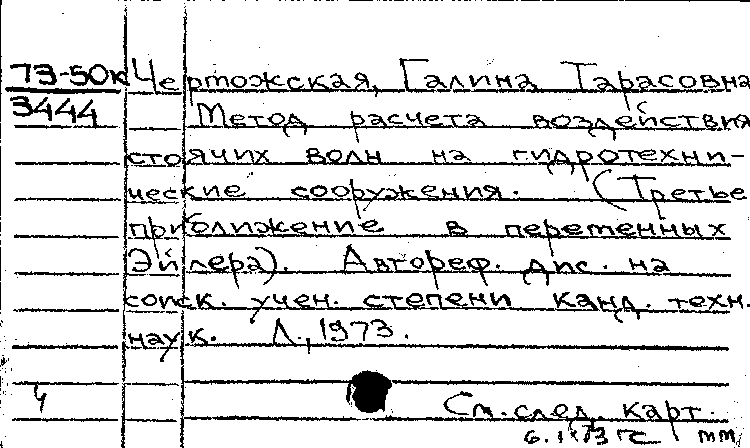 73-50к Чертожская, Галина Тарасовна
3444 Метод расчета воздействия
стоячих волн на гидротехни-
ческие сооружения. (Третье
приближение в переменных
Эйлера). Автореф. дис. на
соиск. учен. степени канд. техн.
наук. Л., 1973.
Ч См. след. карт.
мм